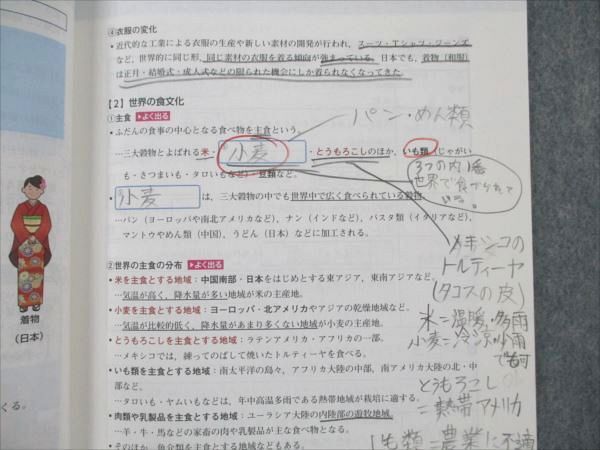 ④衣服の変化
・近代的な工業による衣服の生産や新しい素材の開発が行われ、スーツ・Tシャツ・ジーンズ
など、世界的に同じ形、同じ素材の衣服を着る傾向が強まっている。日本でも、着物(和服)
は正月・結婚式・成人式などの限られた機会にしか着られなくなってきた。
【2】世界の食文化
①主食 ▶よく出る
パン・めん類
・ふだんの食事の中心となる食べ物を主食という。
…三大穀物とよばれる米・小麦・とうもろこしのほか、いも類(じゃがい
も・さつまいも・タロいもなど)・豆類など。
3つの内1番
世界で食べられて
いる。
小麦は、三大穀物の中でも世界中で広く食べられている穀物。
…パン(ヨーロッパや南北アメリカなど)、ナン(インドなど)、パスタ類(イタリアなど)、
マントウやめん類(中国)、うどん(日本)などに加工される。
メキシコの
トルティーヤ
(タコスの皮)
米=温暖・多雨
小麦=冷涼・小雨
でも可
とうもろこし
=熱帯アメリカ
いも類=農業に不適
②世界の主食の分布 ▶よく出る
・米を主食とする地域:中国南部・日本をはじめとする東アジア、東南アジアなど。
…気温が高く、降水量が多い地域が米の主産地。
・小麦を主食とする地域:ヨーロッパ・北アメリカやアジアの乾燥地域など。
…気温が比較的低く、降水量があまり多くない地域が小麦の主産地。
・とうもろこしを主食とする地域:ラテンアメリカ・アフリカの一部。
…メキシコでは、練ってのばして焼いたトルティーヤを食べる。
・いも類を主食とする地域:南太平洋の島々、アフリカ大陸の中部、南アメリカ大陸の北・中
部など。
…タロいも・ヤムいもなどは、年中高温多雨である熱帯地域が栽培に適する。
・肉類や乳製品を主食とする地域:ユーラシア大陸の内陸部の遊牧地域。
…羊・牛・馬などの家畜の肉や乳製品が主な食べ物となる。
・そのほか、魚介類を主食とする地域などもある。
着物
(日本)
くる。